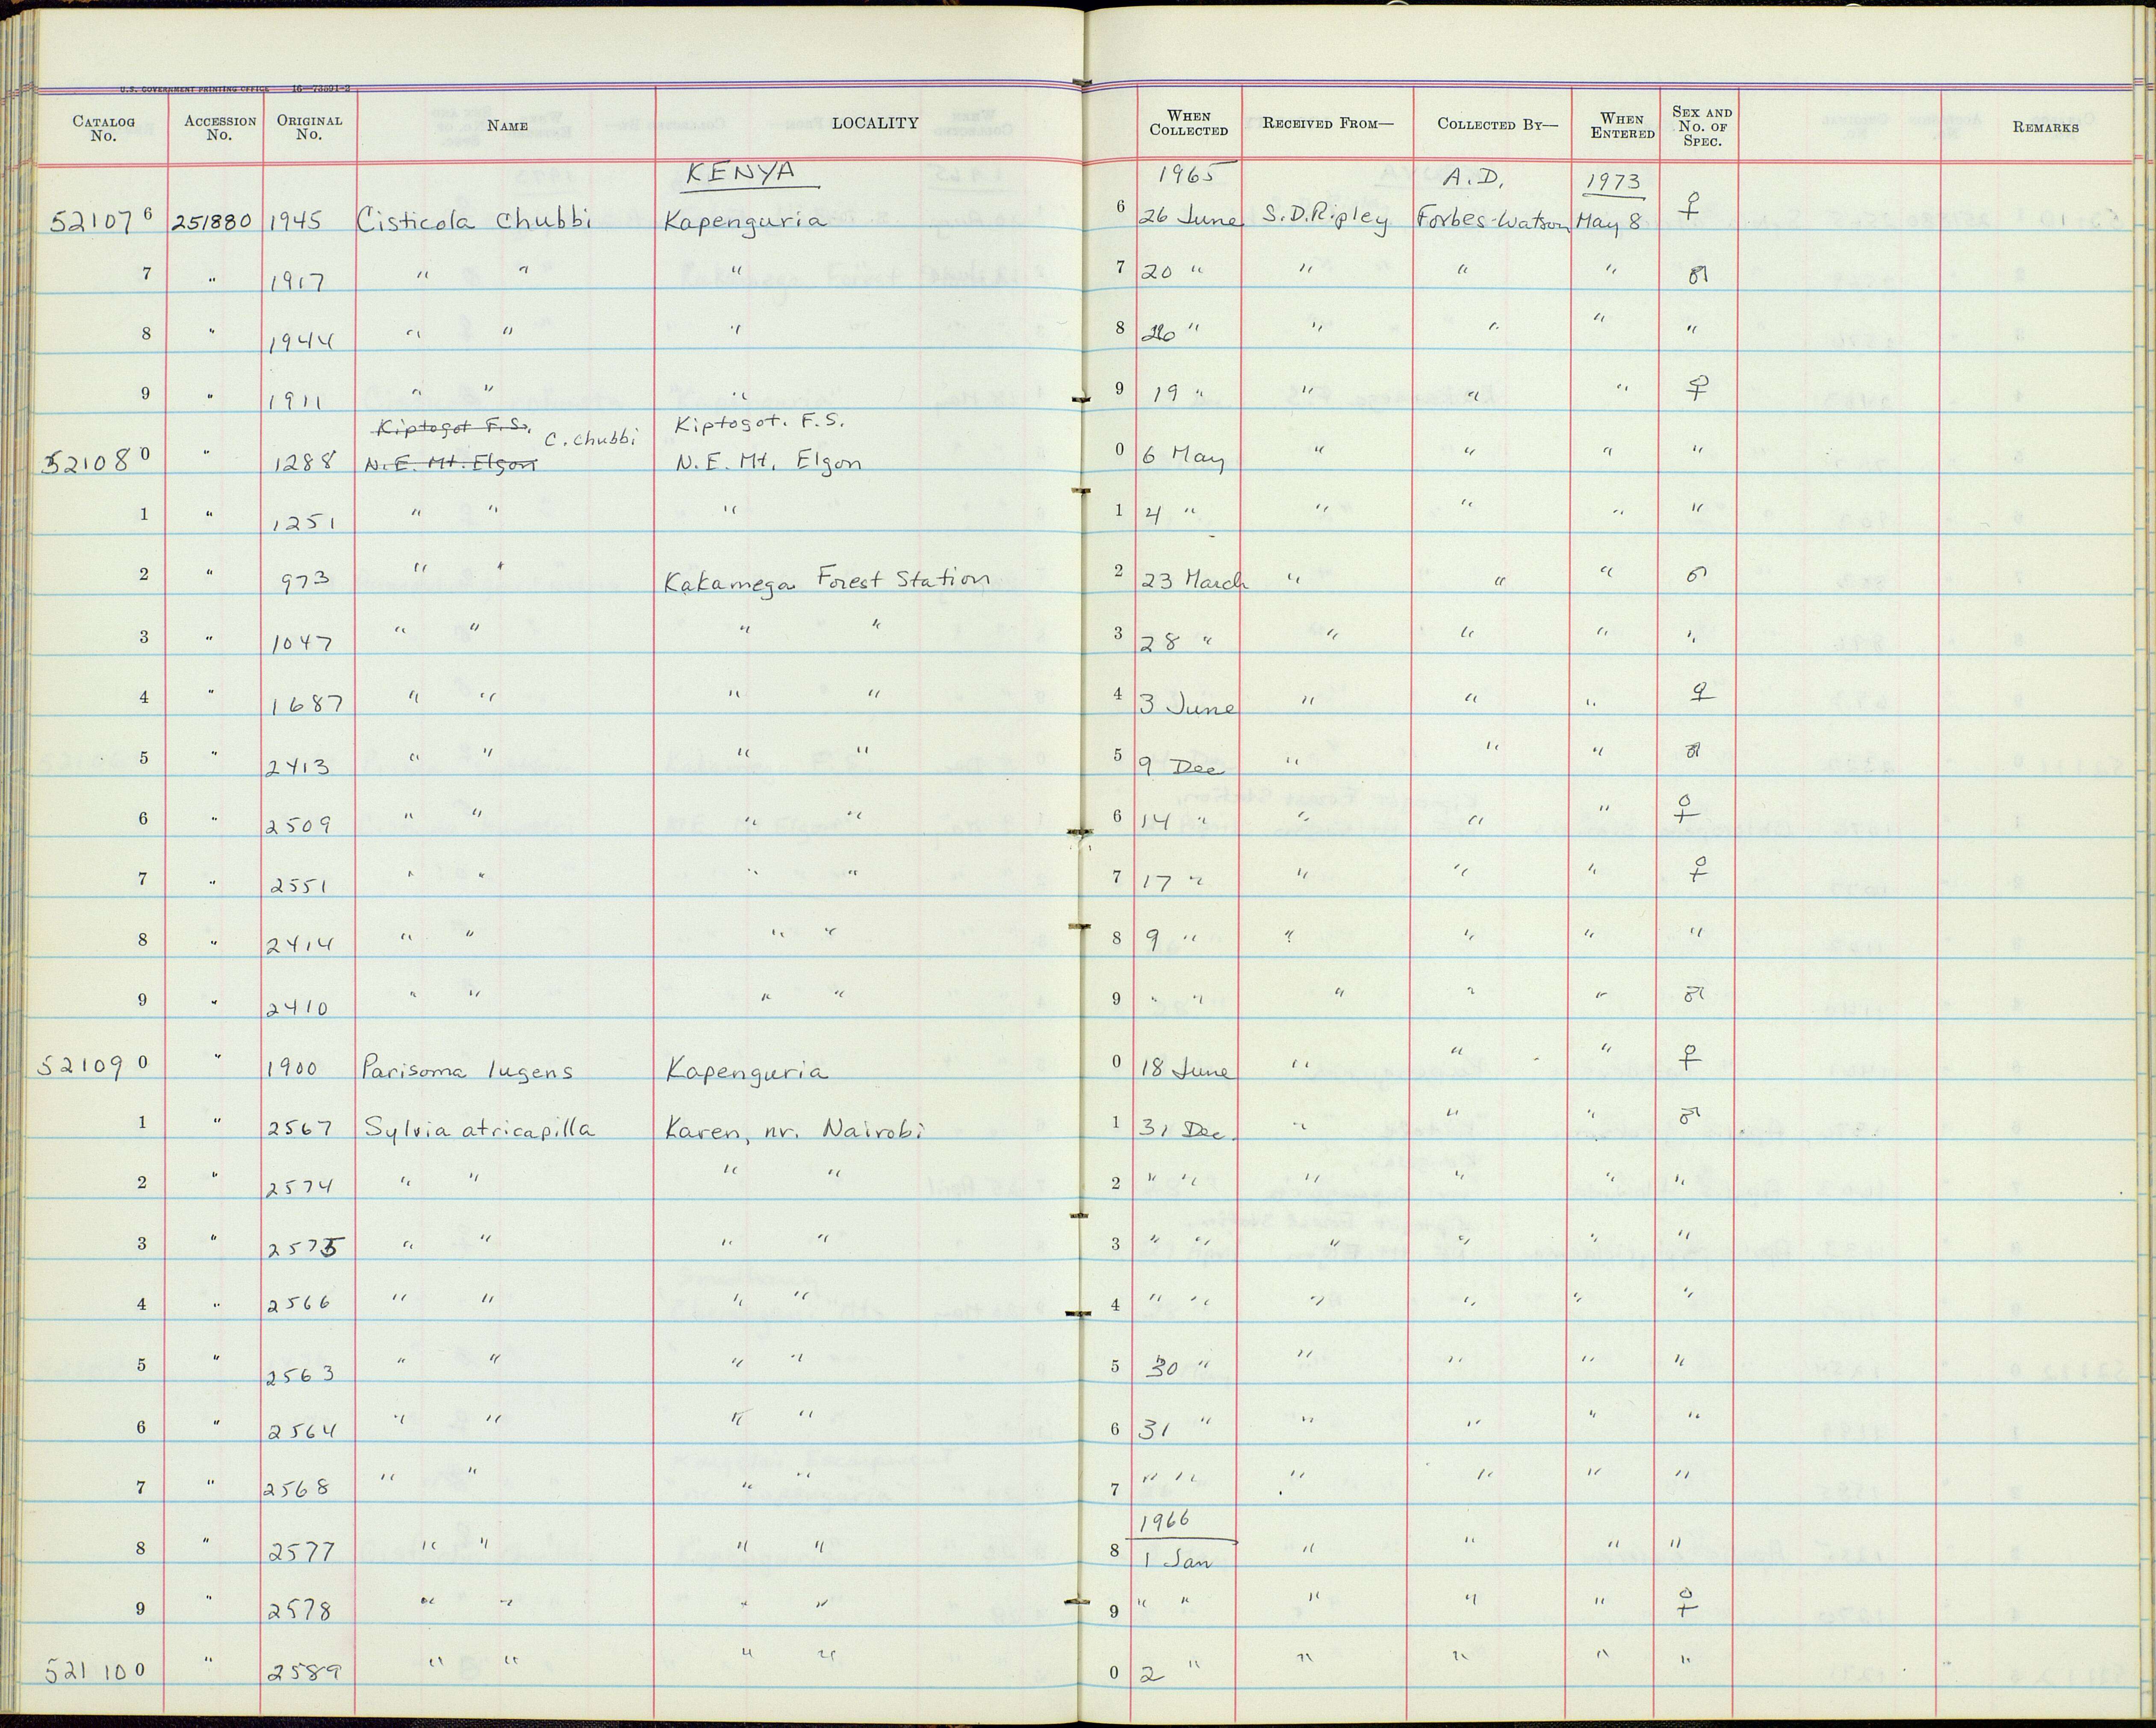 U.S. GOVERNMENT PRINTING OFFICE 16—73591-2
CATALOG No. ACCESSION No. ORIGINAL No. NAME LOCALITY WHEN COLLECTED RECEIVED FROM— COLLECTED BY— WHEN ENTERED SEX AND No. OF SPEC. REMARKS
KENYA 1965 A.D. 1973
521076 251880 1945 Cisticola Chubbi Kapenguria 6 26 June S.D.Ripley Forbes-Watson May 8 ♀
7 " 1917 " " " 7 20 " " " " ♂
8 " 1944 " " " 8 26 " " " " "
9 " 1911 " " " 9 19 " " " " ♀
Kiptogot F.S. C. chubbi Kiptogot. F.S.
521080 " 1288 N.E. Mt. Elgon N.E. Mt. Elgon 0 6 May " " " "
1 " 1251 " " " 1 4 " " " " "
2 " 973 " " Kakamega Forest Station 2 23 March " " " ♂
3 " 1047 " " " " 3 28 " " " " "
4 " 1687 " " " " 4 3 June " " " ♀
5 " 2413 " " " " 5 9 Dec " " " ♂
6 " 2509 " " " " 6 14 " " " " ♀
7 " 2551 " " " " 7 17 " " " " ♀
8 " 2414 " " " " 8 9 " " " " "
9 " 2410 " " " " 9 " " " " " ♂
521090 " 1900 Parisoma lugens Kapenguria 0 18 June " " " ♀
1 " 2567 Sylvia atricapilla Karen, nr. Nairobi 1 31 Dec. " " " ♂
2 " 2574 " " " " 2 " " " " " "
3 " 2575 " " " " 3 " " " " " "
4 " 2566 " " " " 4 " " " " " "
5 " 2563 " " " " 5 30 " " " " "
6 " 2564 " " " " 6 31 " " " " "
7 " 2568 " " " " 7 " " " " " "
1966
8 " 2577 " " " " 8 1 Jan " " " "
9 " 2578 " " " " 9 " " " " " ♀
521100 " 2589 " " " " 0 2 " " " " "